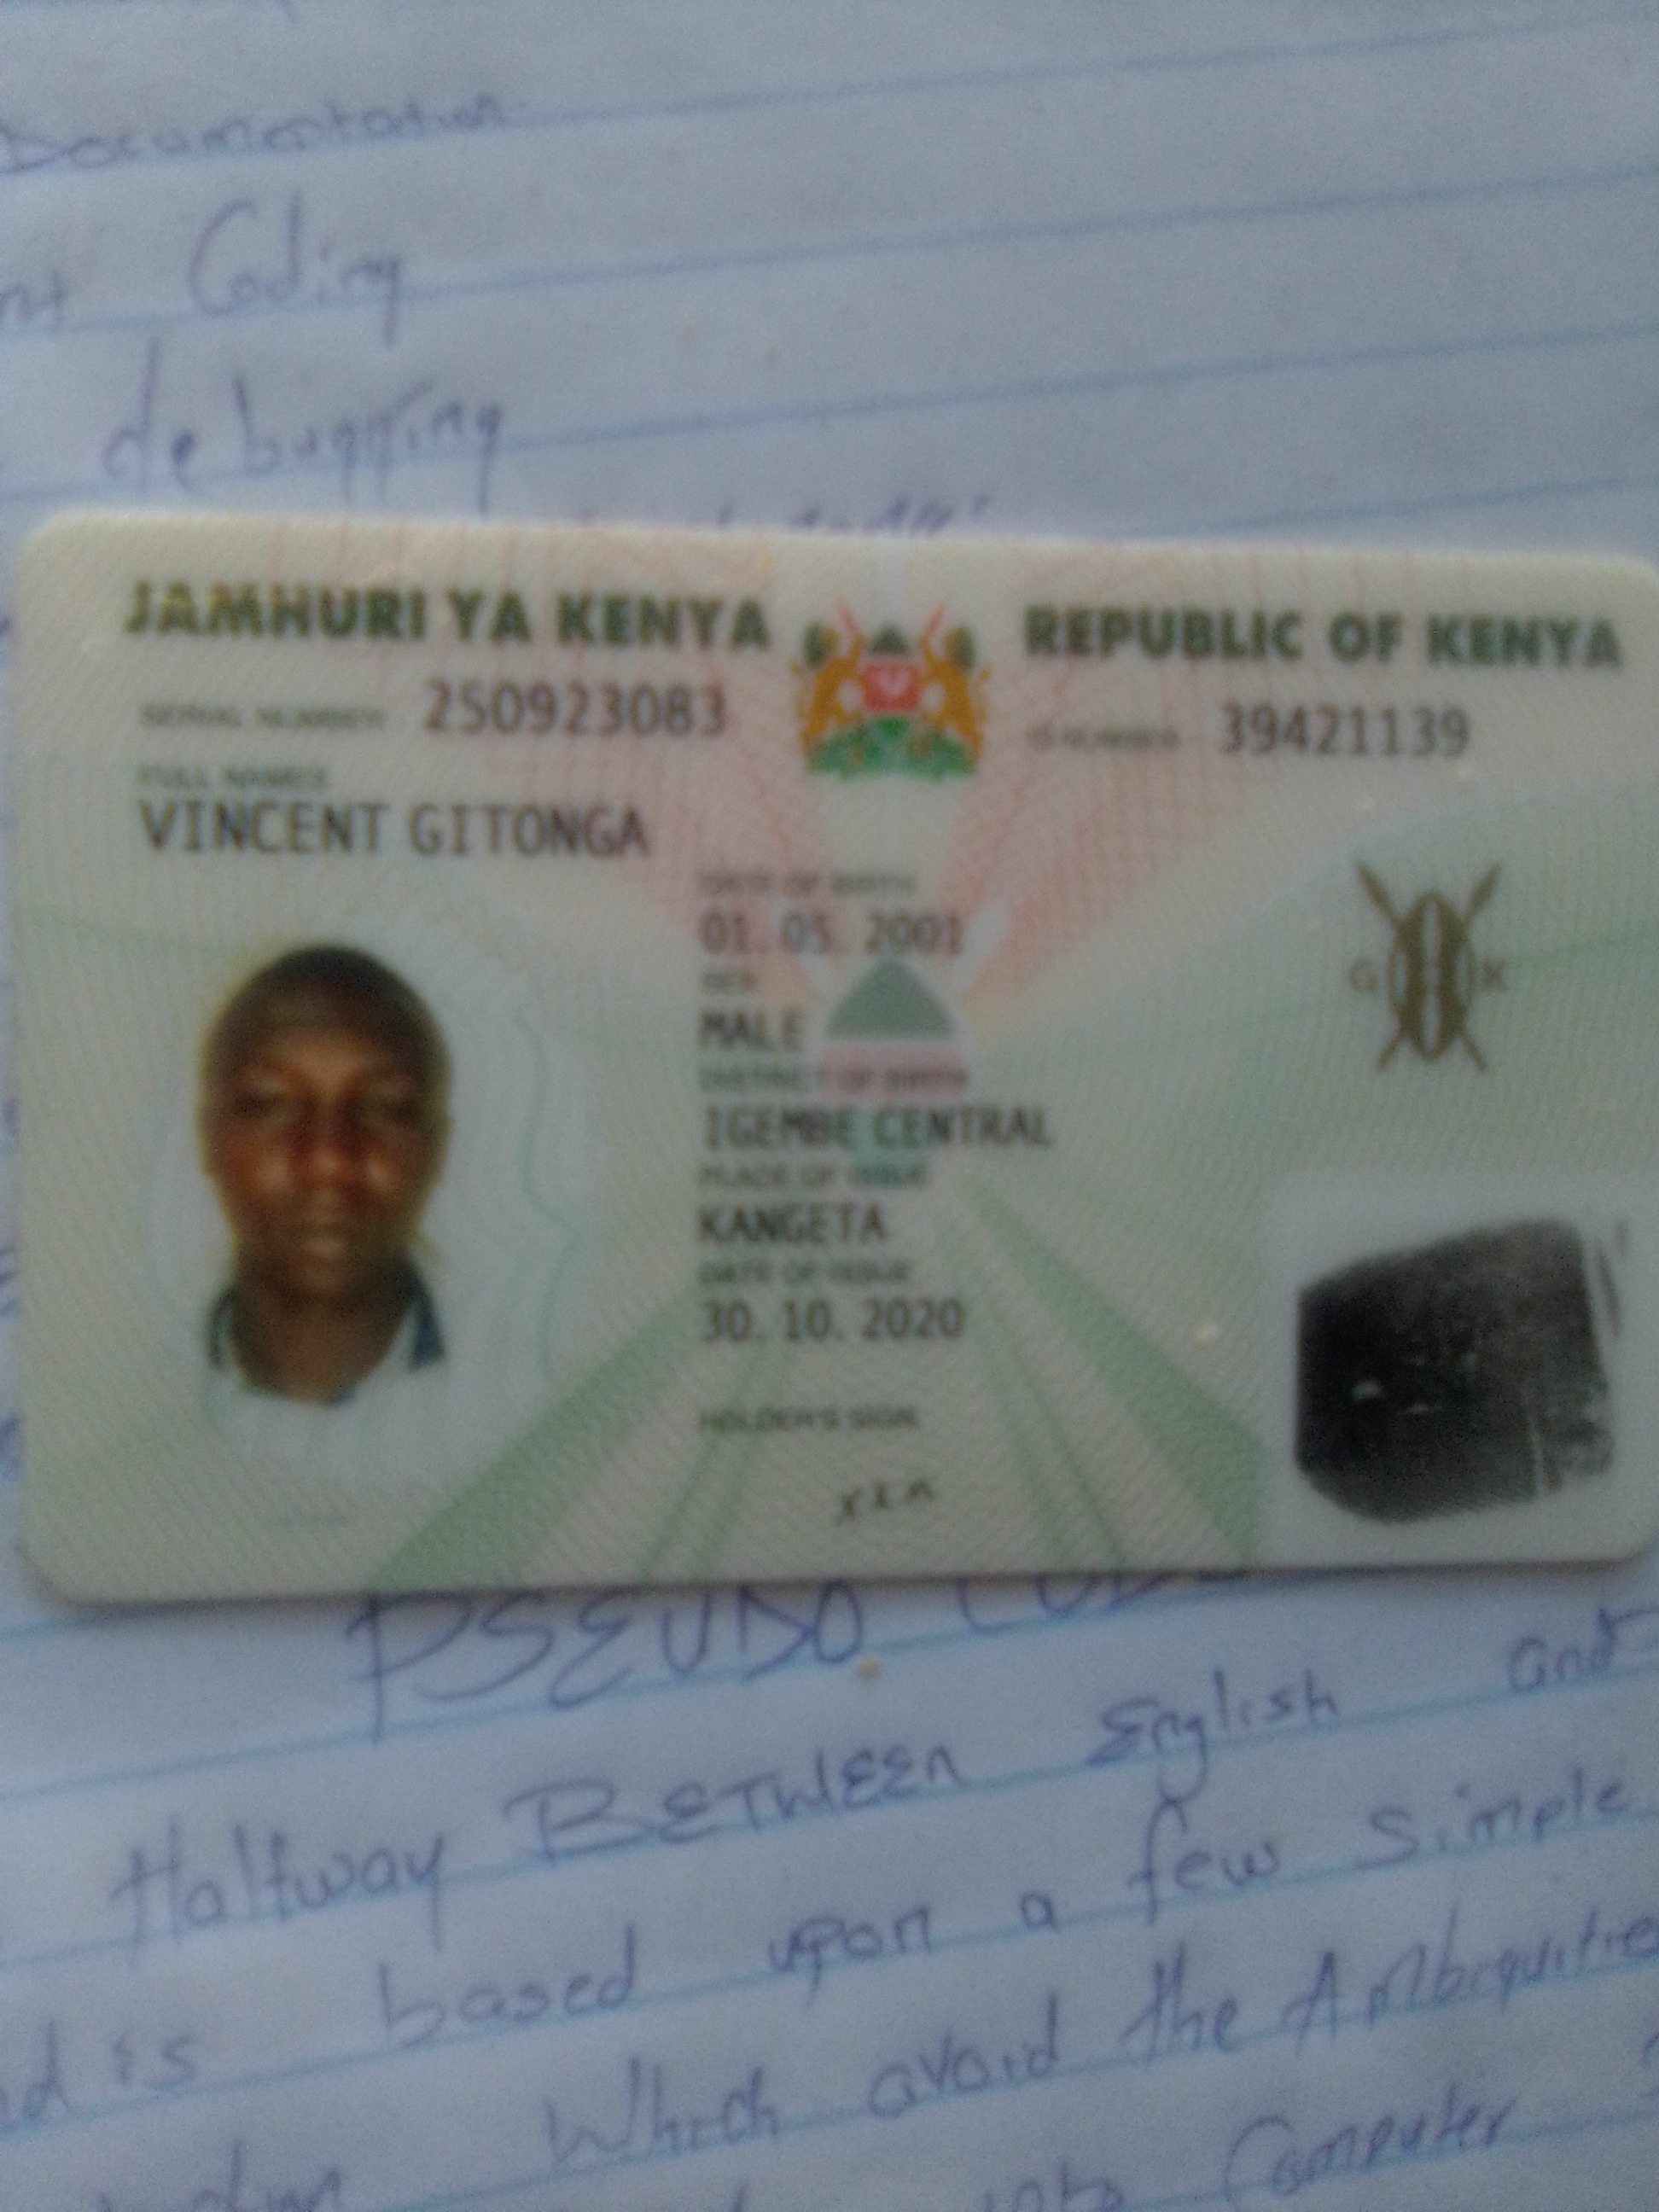 Documentation
Coding
debugging
JAMHURI YA KENYA REPUBLIC OF KENYA
SERIAL NUMBER 250923083 ID NUMBER 39421139
FULL NAMES
VINCENT GITONGA
DATE OF BIRTH
01. 05. 2001
SEX
MALE
G K
DISTRICT OF BIRTH
IGEMBE CENTRAL
PLACE OF ISSUE
KANGETA
DATE OF ISSUE
30. 10. 2020
HOLDER'S SIGN.
PSEUDO
Halfway BETWEEN English and
based upon a few simple
is
Which avoid the
Computer